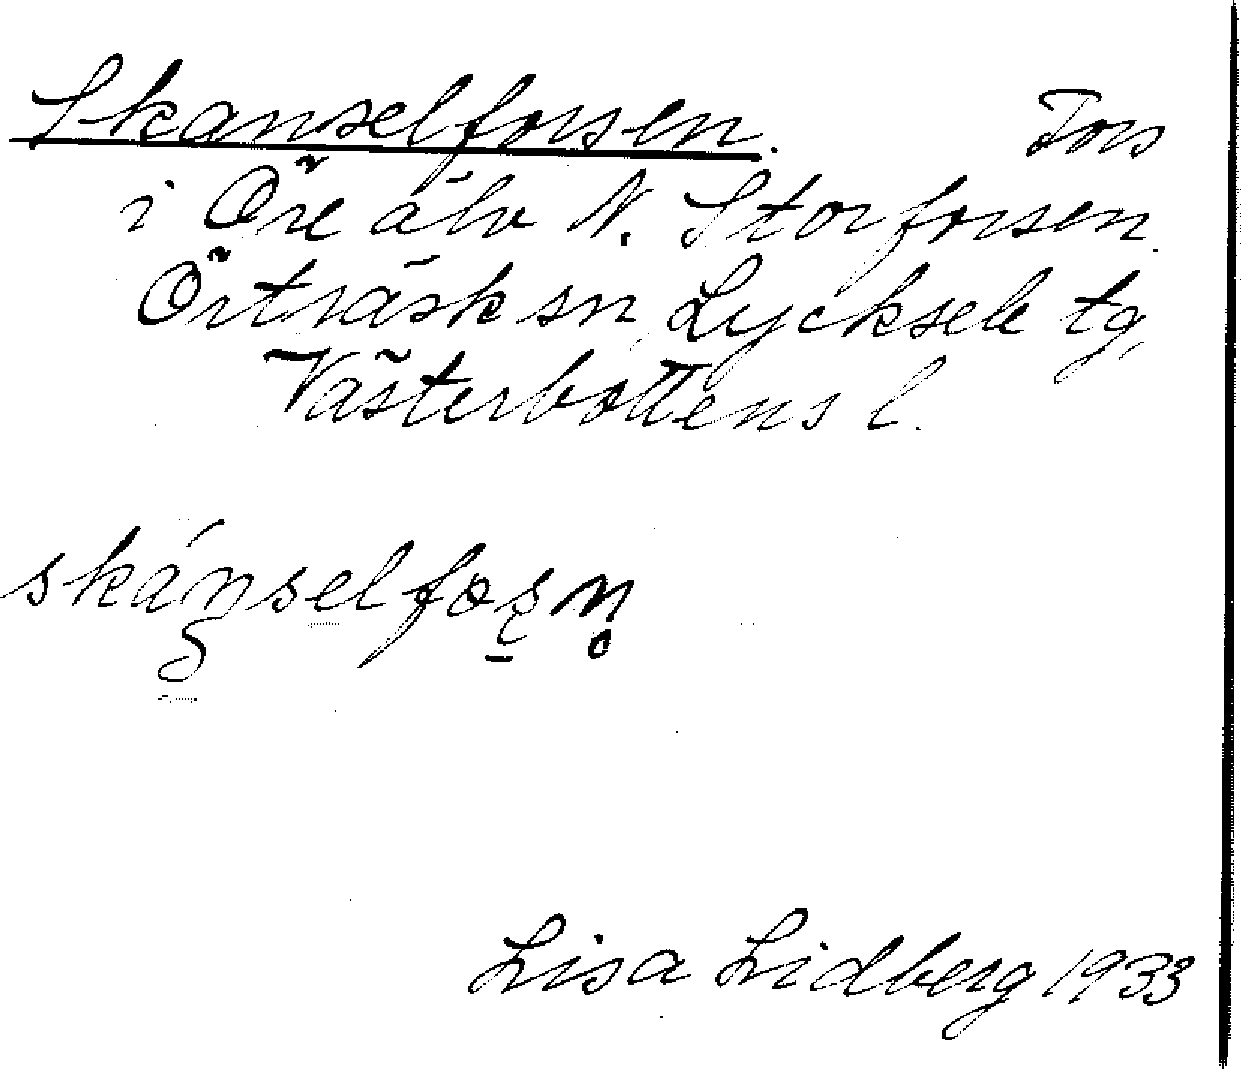 Skanselforsen. Fors
i Öre älv N. Storforsen.
Örträsk sn, Lycksele tg,
Västerbottens l.
skánselfo̱rsn̥
Lisa Lidberg 1933